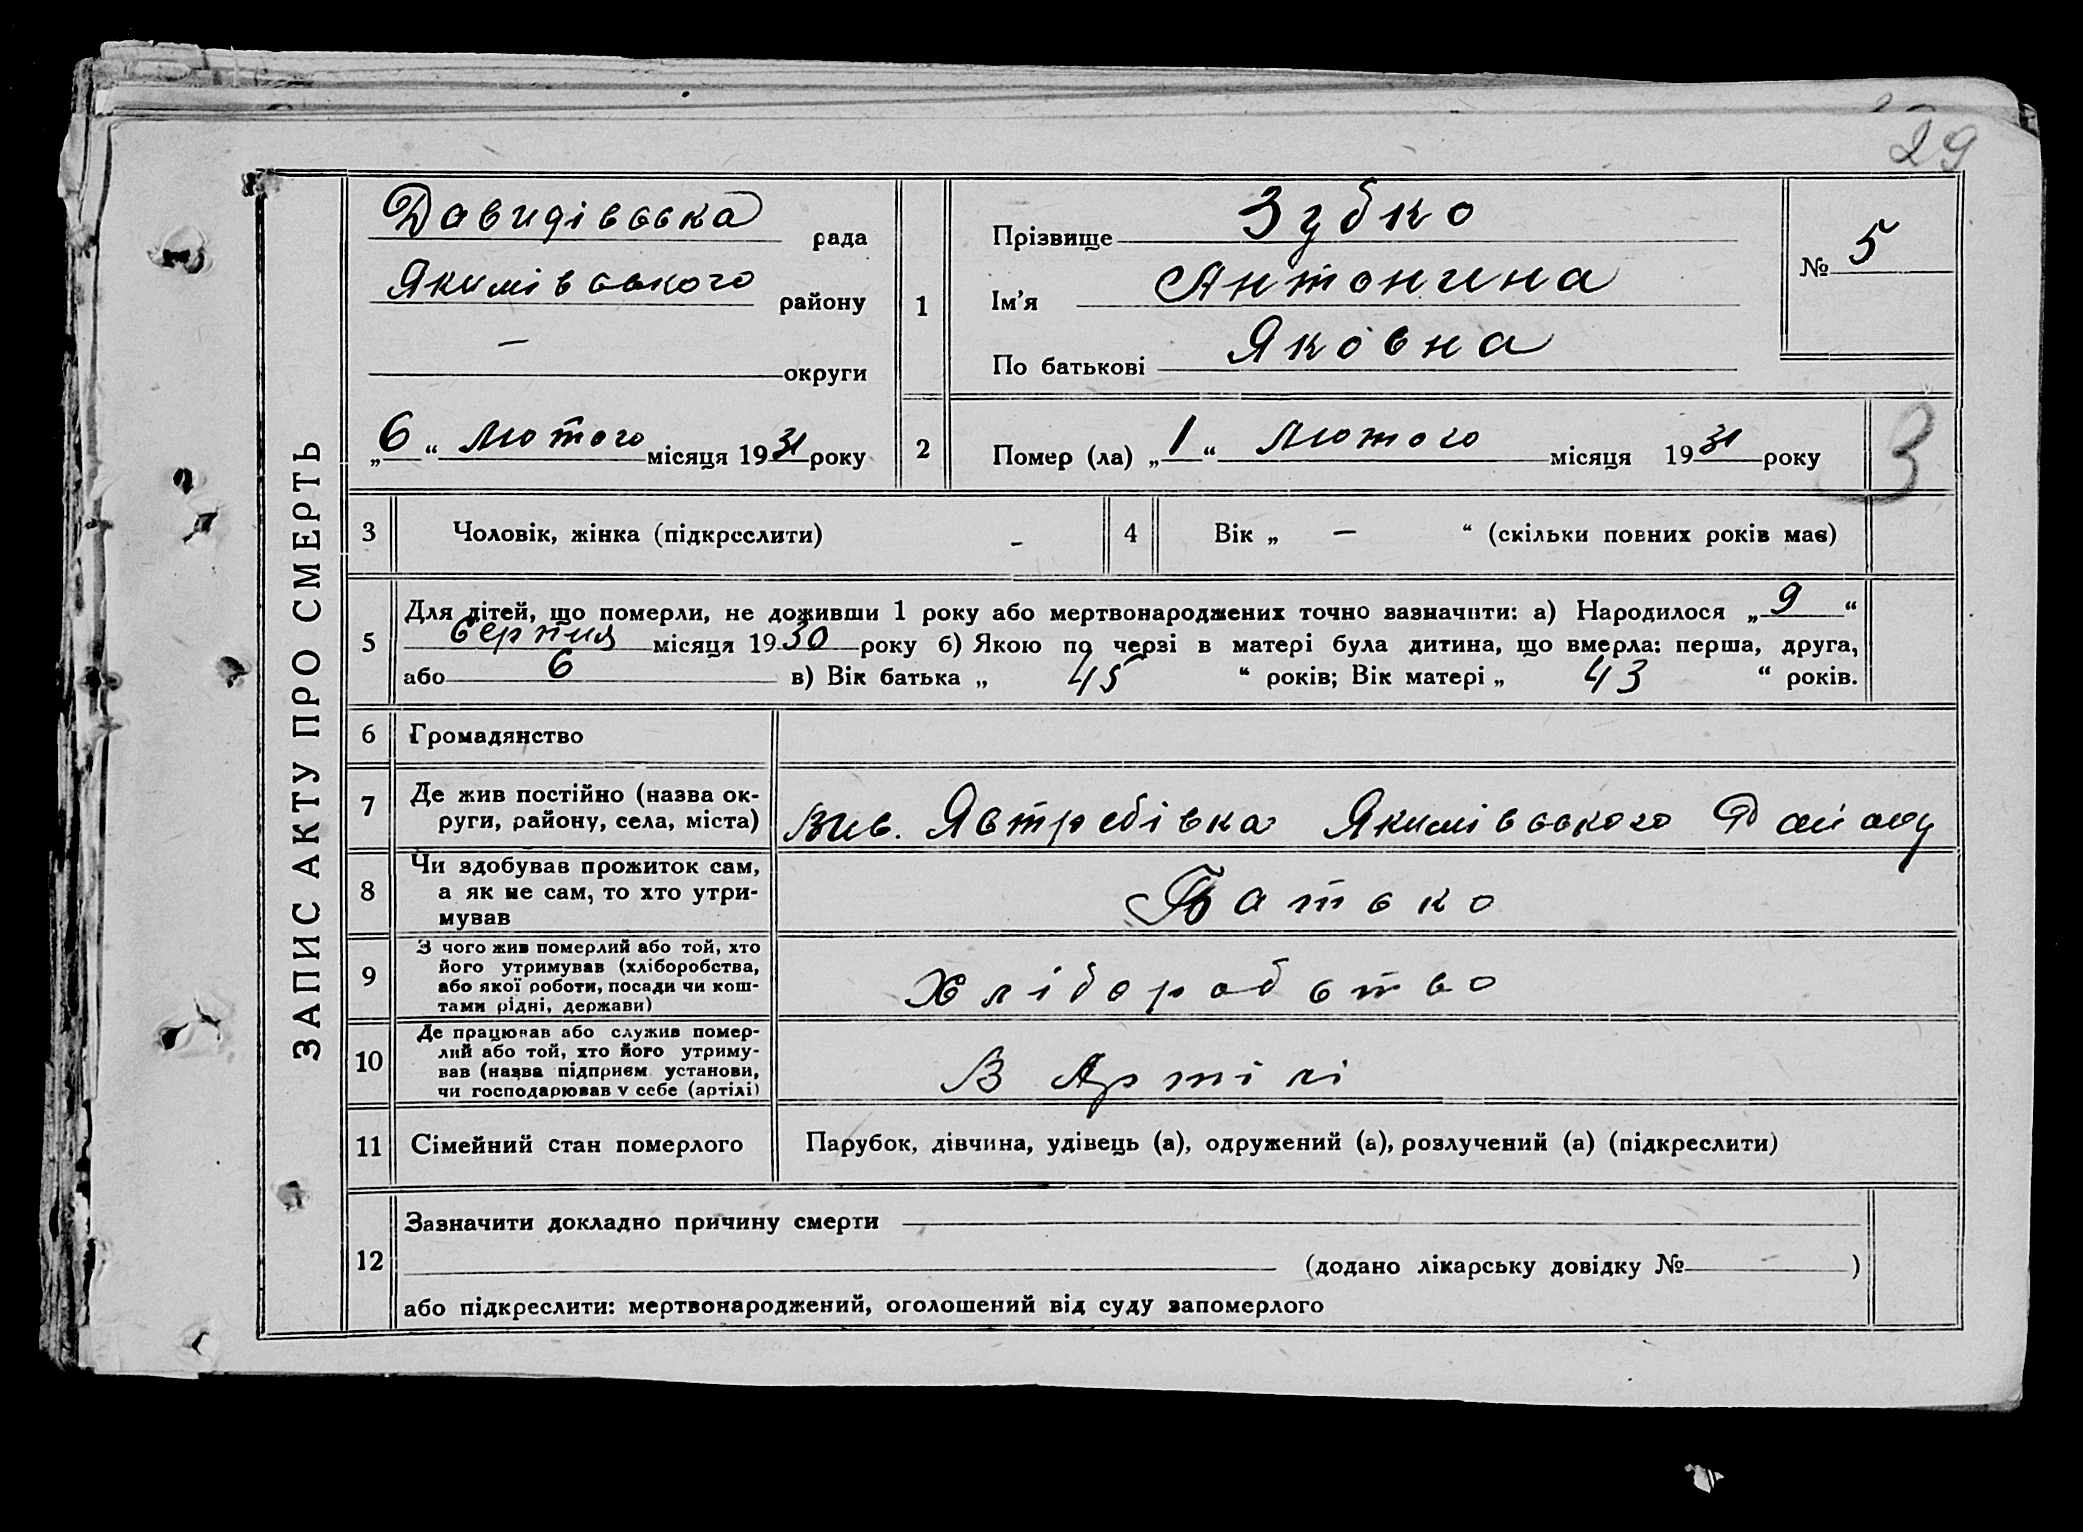 29
ЗАПИС АКТУ ПРО СМЕРТЬ
Давидівська рада
Якимівського району
— округи
„6“ Лютого місяця 1931 року
1
Прізвище Зубко
Ім’я Антонина
По батькові Яковна
№ 5
2 Помер (ла) „1“ Лютого місяця 1931 року
3
3 Чоловік, жінка (підкреслити) -
4 Вік „ — “ (скільки повних років має)
5 Для дітей, що померли, не доживши 1 року або мертвонароджених точно зазначити: а) Народилося „9“
серпня місяця 1930 року б) Якою по черзі в матері була дитина, що вмерла: перша, друга,
або 6 в) Вік батька „ 45 “ років; Вік матері „ 43 “ років.
6 Громадянство
7 Де жив постійно (назва ок-
руги, району, села, міста)
Явтребівка Якимівського Району
8 Чи здобував прожиток сам,
а як не сам, то хто утри-
мував
Батько
9 З чого жив померлий або той, хто
його утримував (хліборобства,
або якої роботи, посади чи кош-
тами рідні, держави)
Хліборобство
10 Де працював або служив помер-
лий або той, хто його утриму-
вав (назва підприєм. установи,
чи господарював у себе (артілі)
В Артілі
11 Сімейний стан померлого
Парубок, дівчина, удівець (а), одружений (а), розлучений (а) (підкреслити)
12 Зазначити докладно причину смерти
(додано лікарську довідку № - )
або підкреслити: мертвонароджений, оголошений від суду запомерлого